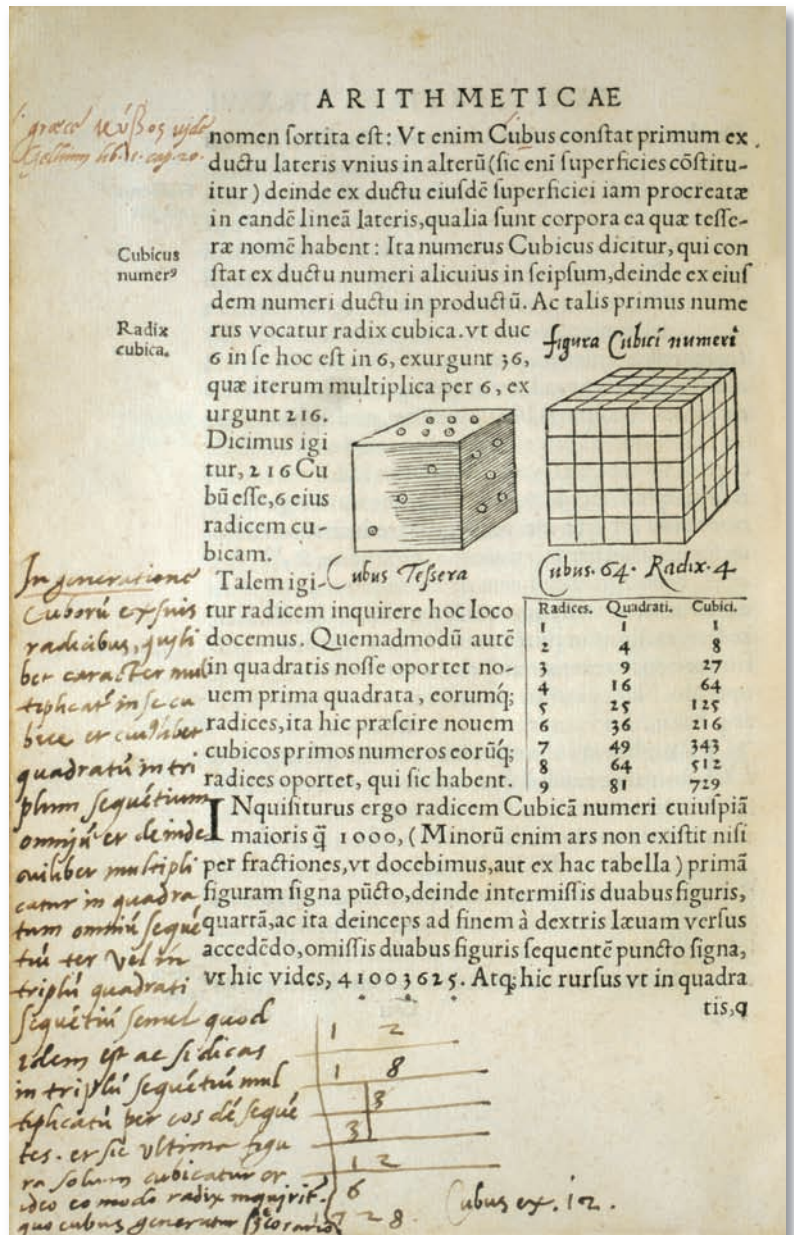 ARITHMETICAE
græce κύβος vide
nomen ſortita eſt: Vt enim Cubus conſtat primum ex
ductu lateris vnius in alterū (ſic enī ſuperficies cōſtitu-
itur) deinde ex ductu eiuſdē ſuperficiei iam procreatæ
in eandē lineā lateris, qualia ſunt corpora ea quæ teſſe-
ræ nomē habent: Ita numerus Cubicus dicitur, qui con
ſtat ex ductu numeri alicuius in ſeipſum, deinde ex eiuſ
dem numeri ductu in productū. Ac talis primus nume
Cubicus
numerꝰ
Radix
cubica.
rus vocatur radix cubica. vt duc
6 in ſe hoc eſt in 6, exurgunt 36,
quæ iterum multiplica per 6, ex
urgunt 216.
Dicimus igi
tur, 216 Cu
bū eſſe, 6 eius
radicem cu-
bicam.
Talem igi-
figura Cubici numeri
Cubus Teſsera
Cubus. 64. Radix. 4
tur radicem inquirere hoc loco
docemus. Quemadmodū autē
in quadratis noſſe oportet no-
uem prima quadrata, eorumq́;
radices, ita hic præſcire nouem
cubicos primos numeros eorūq́;
radices oportet, qui ſic habent.
Radices. Quadrati. Cubici.
1 1 1
2 4 8
3 9 27
4 16 64
5 25 125
6 36 216
7 49 343
8 64 512
9 81 729
INquiſiturus ergo radicem Cubicā numeri cuiuſpiā
maioris q̄ 1000, (Minorū enim ars non exiſtit niſi
per fractiones, vt docebimus, aut ex hac tabella) primā
figuram ſigna pūcto, deinde intermiſſis duabus figuris,
quartā, ac ita deinceps ad finem à dextris læuam verſus
accedēdo, omiſſis duabus figuris ſequentē puncto ſigna,
vt hic vides, 41003625. Atq; hic rurſus vt in quadra
tis, q
In generatione
Cuborū ex ſuis
radicibus, quili
bet caracter mul
tiplicat in ſe cu
bice et cuiuſlibet
quadratū in tri
plum ſequētium
omniū et deinde
quilibet multipli
catur in quadra
tum omniū ſequē
tiū ter vel in
triplū quadrati
ſequētiū ſemel quod
idem eſt ac ſi dicas
in triplū ſequētiū mul
tiplicatū per eos dē ſequē
tes. et ſic vltima figu
ra ſolum cubicatur et
ideo eo modo radix inquirit.
quo cubus generatur
1 2
1 8
3
3
1 2
6
1 7 2 8
Cubus ex. 12.